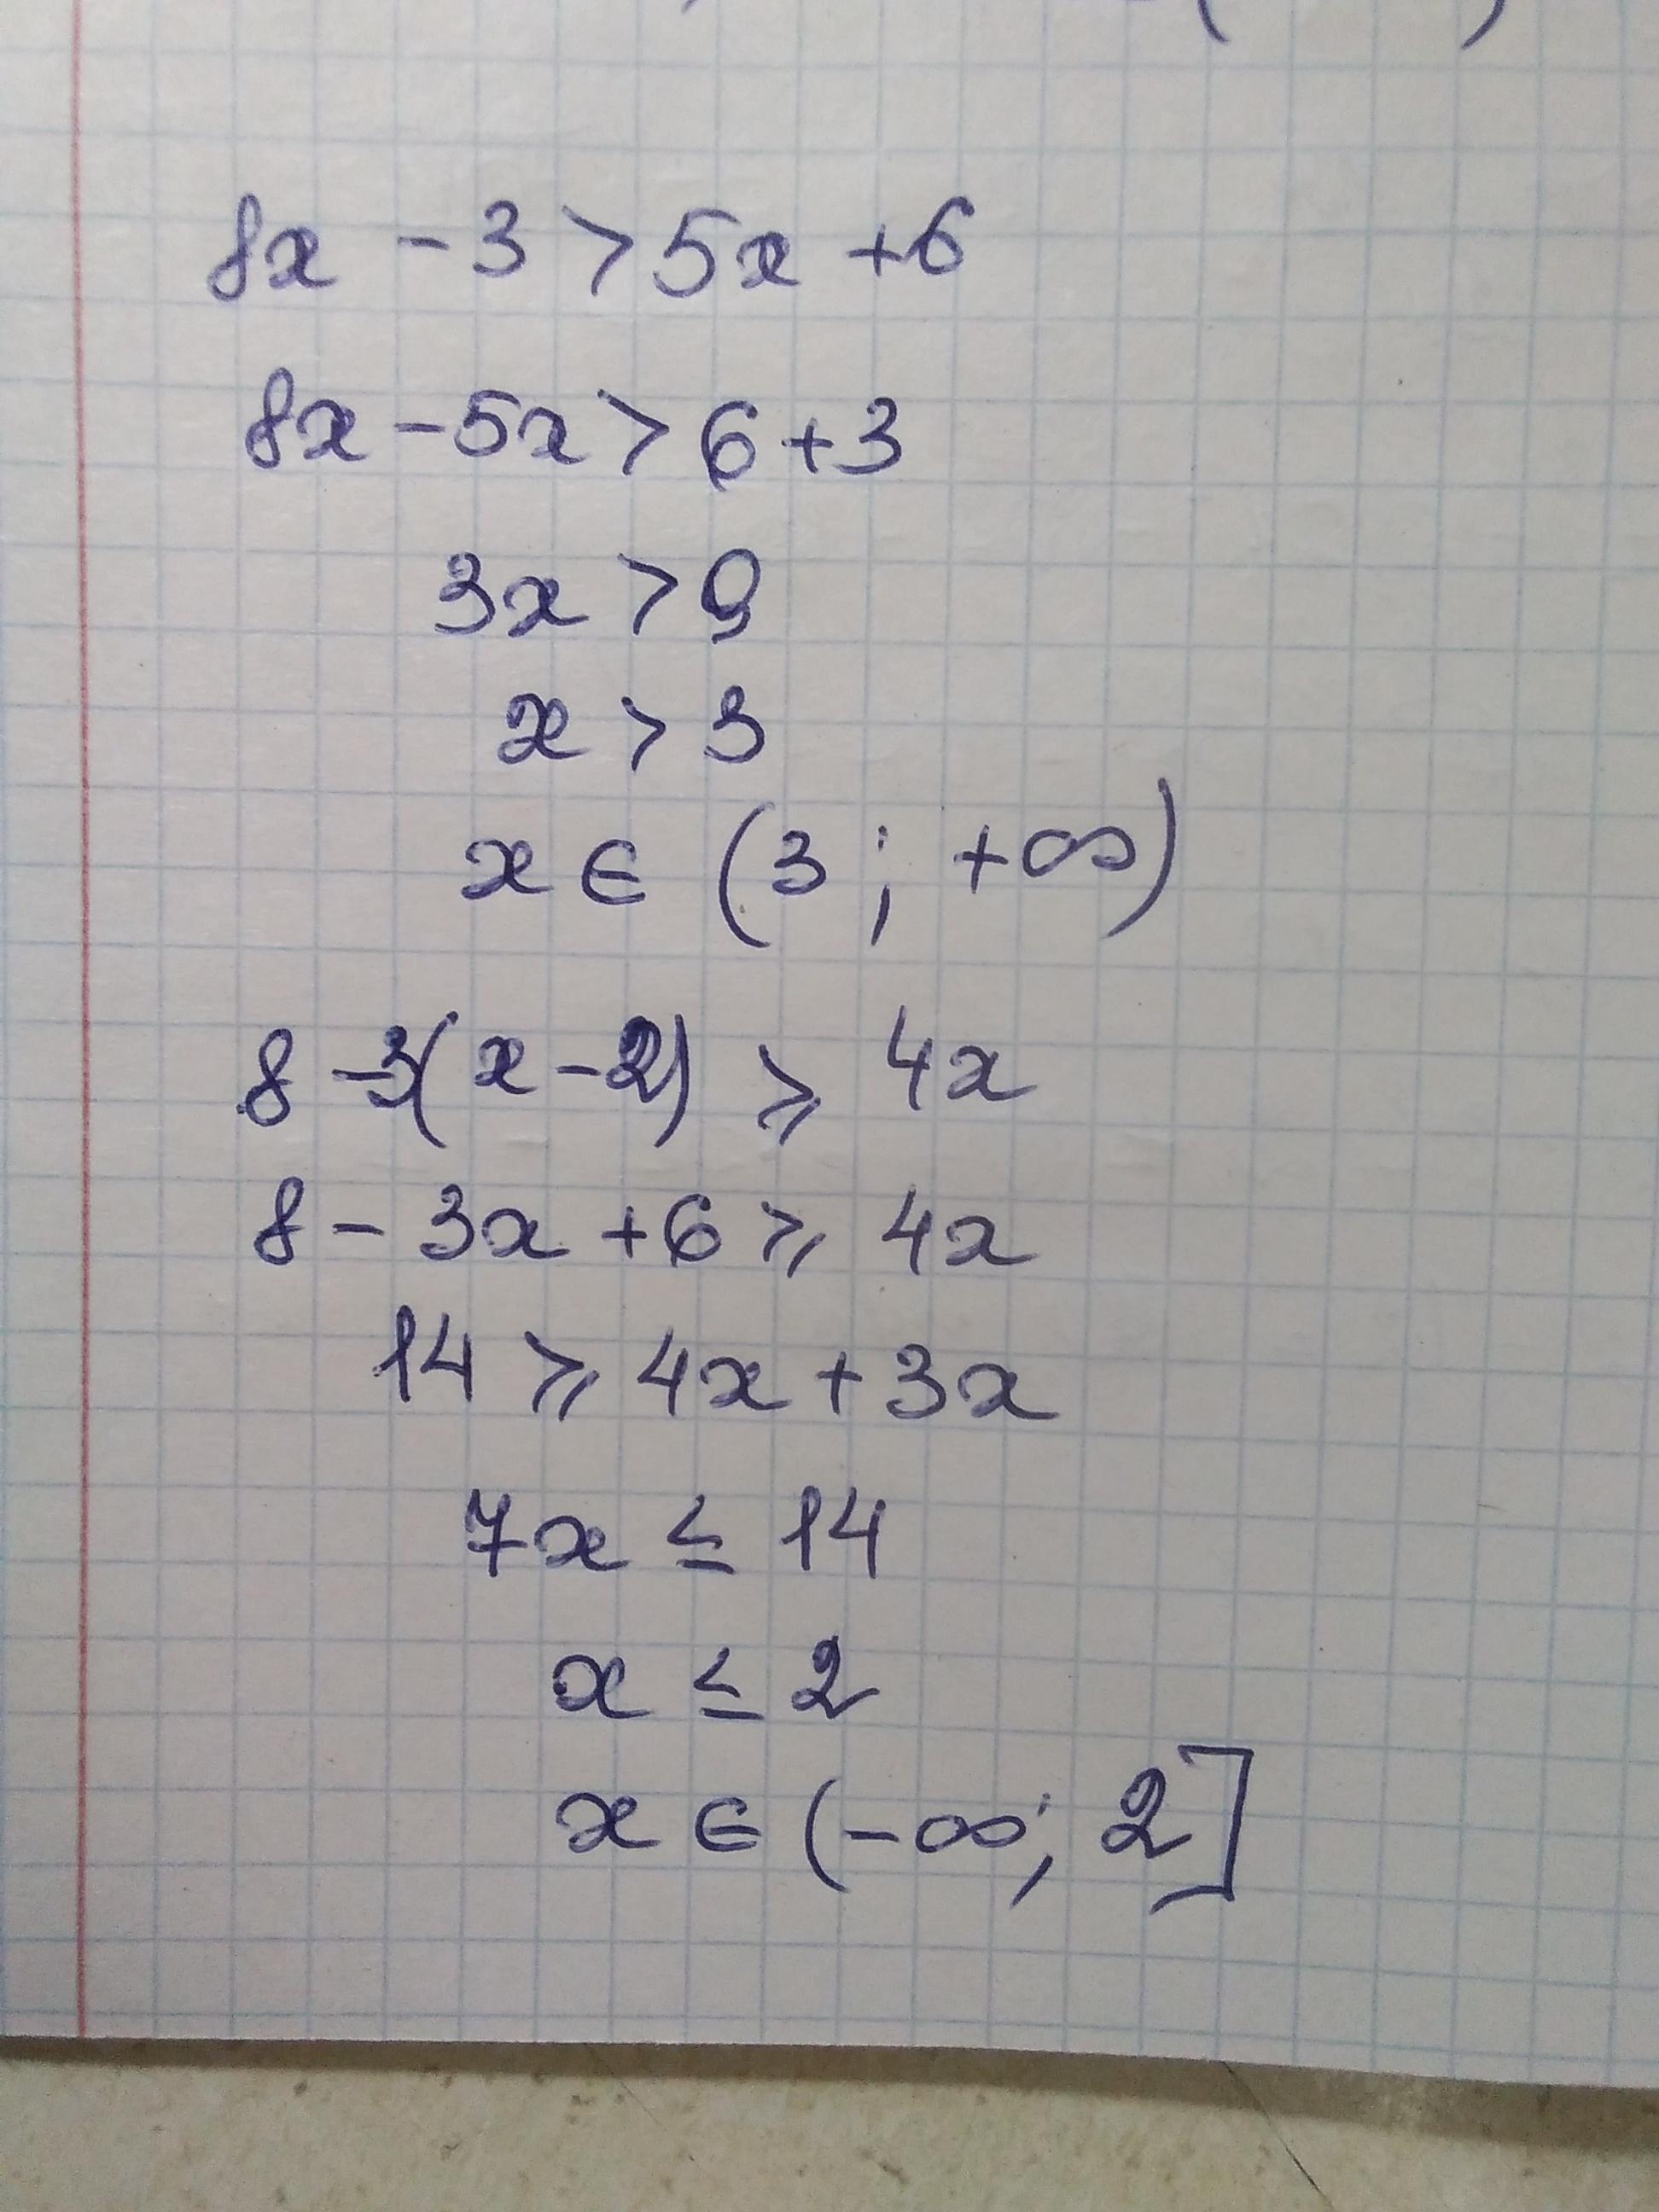 8x - 3 > 5x + 6
8x - 5x > 6 + 3
3x > 9
x > 3
x ∈ (3 ; +∞)
8 - 3(x - 2) ⩾ 4x
8 - 3x + 6 ⩾ 4x
14 ⩾ 4x + 3x
7x ≤ 14
x ≤ 2
x ∈ (-∞; 2]